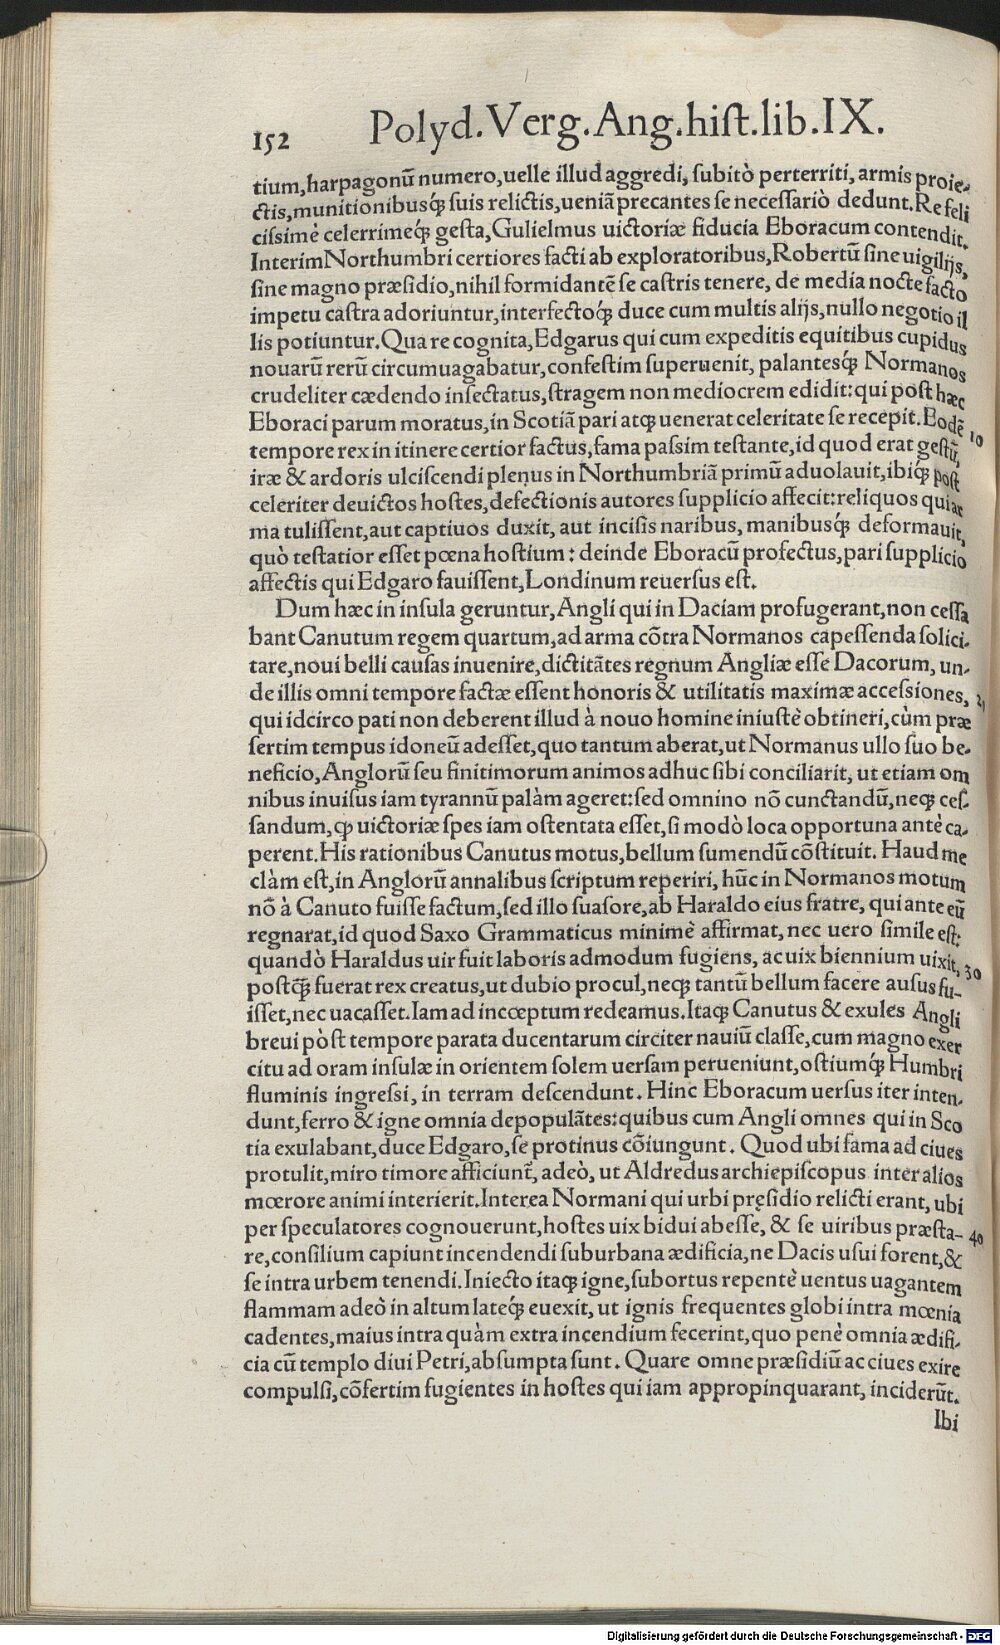 152 Polyd. Verg. Ang. hiſt. lib. IX.
tium, harpagonū numero, uelle illud aggredi, ſubitò perterriti, armis proie-
ctis, munitionibusq́; ſuis relictis, ueniā precantes ſe neceſſariò dedunt. Re feli
ciſsimè celerrimeq́; geſta, Gulielmus uictoriæ fiducia Eboracum contendit.
Interim Northumbri certiores facti ab exploratoribus, Robertū ſine uigilijs,
ſine magno præſidio, nihil formidantē ſe caſtris tenere, de media nocte facto
impetu caſtra adoriuntur, interfectoq́; duce cum multis alijs, nullo negotio il
lis potiuntur. Qua re cognita, Edgarus qui cum expeditis equitibus cupidus
nouarū rerū circumuagabatur, confeſtim ſuperuenit, palantesq́; Normanos
crudeliter cædendo inſectatus, ſtragem non mediocrem edidit: qui poſt hæc
Eboraci parum moratus, in Scotiā pari atq; uenerat celeritate ſe recepit. Eodē 10
tempore rex in itinere certior factus, fama paſsim teſtante, id quod erat geſtū,
iræ & ardoris ulciſcendi plenus in Northumbriā primū aduolauit, ibiq́; poſt
celeriter deuictos hoſtes, defectionis autores ſupplicio affecit: reliquos qui ar
ma tuliſſent, aut captiuos duxit, aut inciſis naribus, manibusq́; deformauit,
quò teſtatior eſſet pœna hoſtium: deinde Eboracū profectus, pari ſupplicio
affectis qui Edgaro fauiſſent, Londinum reuerſus eſt.
Dum hæc in inſula geruntur, Angli qui in Daciam profugerant, non ceſſa
bant Canutum regem quartum, ad arma cōtra Normanos capeſſenda ſolici-
tare, noui belli cauſas inuenire, dictitātes regnum Angliæ eſſe Dacorum, un-
de illis omni tempore factæ eſſent honoris & utilitatis maximæ acceſsiones,
qui idcirco pati non deberent illud à nouo homine iniuſtè obtineri, cùm præ
ſertim tempus idoneū adeſſet, quo tantum aberat, ut Normanus ullo ſuo be-
neficio, Anglorū ſeu finitimorum animos adhuc ſibi conciliarit, ut etiam om
nibus inuiſus iam tyrannū palàm ageret: ſed omnino nō cunctandū, neq; ceſ-
ſandum, q̨ uictoriæ ſpes iam oſtentata eſſet, ſi modò loca opportuna antè ca-
perent. His rationibus Canutus motus, bellum ſumendū cōſtituit. Haud me
clàm eſt, in Anglorū annalibus ſcriptum reperiri, hūc in Normanos motum
nō à Canuto fuiſſe factum, ſed illo ſuaſore, ab Haraldo eius fratre, qui ante eū
regnarat, id quod Saxo Grammaticus minimè affirmat, nec uero ſimile eſt:
quandò Haraldus uir fuit laboris admodum fugiens, ac uix biennium uixit, 30
poſtq̄; fuerat rex creatus, ut dubio procul, neq; tantū bellum facere auſus fu-
iſſet, nec uacaſſet. Iam ad incœptum redeamus. Itaq; Canutus & exules Angli
breui pòſt tempore parata ducentarum circiter nauiū claſſe, cum magno exer
citu ad oram inſulæ in orientem ſolem uerſam perueniunt, oſtiumq́; Humbri
fluminis ingreſsi, in terram deſcendunt. Hinc Eboracum uerſus iter inten-
dunt, ferro & igne omnia depopulātes: quibus cum Angli omnes qui in Sco
tia exulabant, duce Edgaro, ſe protinus cōiungunt. Quod ubi fama ad ciues
protulit, miro timore afficiunt̄, adeò, ut Aldredus archiepiſcopus inter alios
mœrore animi interierit. Interea Normani qui urbi pręſidio relicti erant, ubi
per ſpeculatores cognouerunt, hoſtes uix bidui abeſſe, & ſe uiribus præſta- 40
re, conſilium capiunt incendendi ſuburbana ædificia, ne Dacis uſui forent, &
ſe intra urbem tenendi. Iniecto itaq; igne, ſubortus repentè uentus uagantem
flammam adeò in altum lateq́; euexit, ut ignis frequentes globi intra mœnia
cadentes, maius intra quàm extra incendium fecerint, quo penè omnia ædifi-
cia cū templo diui Petri, abſumpta ſunt. Quare omne præſidiū ac ciues exire
compulſi, cōfertim fugientes in hoſtes qui iam appropinquarant, inciderūt.
Ibi
Digitalisierung gefördert durch die Deutsche Forschungsgemeinschaft - DFG